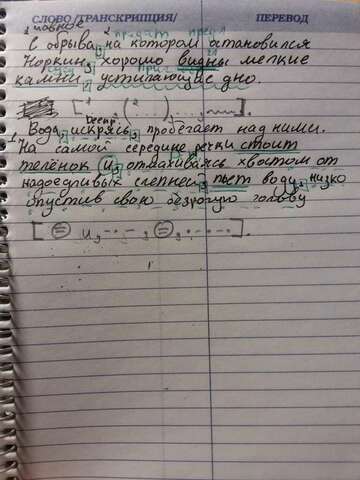 СЛОВО /ТРАНСКРИПЦИЯ/ ПЕРЕВОД
С обрыва, на котором остановился
Норкин, хорошо видны мелкие
камни, устилающие дно.
[ ( ) ].
Деепр.
Вода, искрясь, пробегает над ними.
На самой середине речки стоит
телёнок и, отмахиваясь хвостом от
надоедливых слепней, пьёт воду, низко
опустив свою безрогую голову
[ и, ].